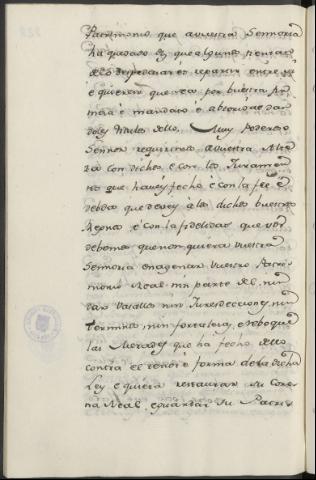 Patrimonio que a vuestra Señoria
ha quedado é que algunos piensan
de lo despedazar é repartir entre si
é quieren que sea por vuestra
mara é mandado é
doles titulos dello, Muy Poderoso
Señor requirimos a vuestra Alte
za con dichas é con los Juramen
tos que haveis fecho é con la fee é
debdo que deveis á los dichos buestros
Reynos, é con la fidelidad que vos
debemos que non quiera vuestra
Señoria enagenar vuestro Patri
monio Real nin parte del, nin
dar Vasallos nin Juresdecciones, nin
terminos nin fortalezas, é reboque
las Mercedes que ha fecho dello
contra el tenor é forma de la dicha
Ley é quiera restaurar su Coro
na Real, é guardar su Patri